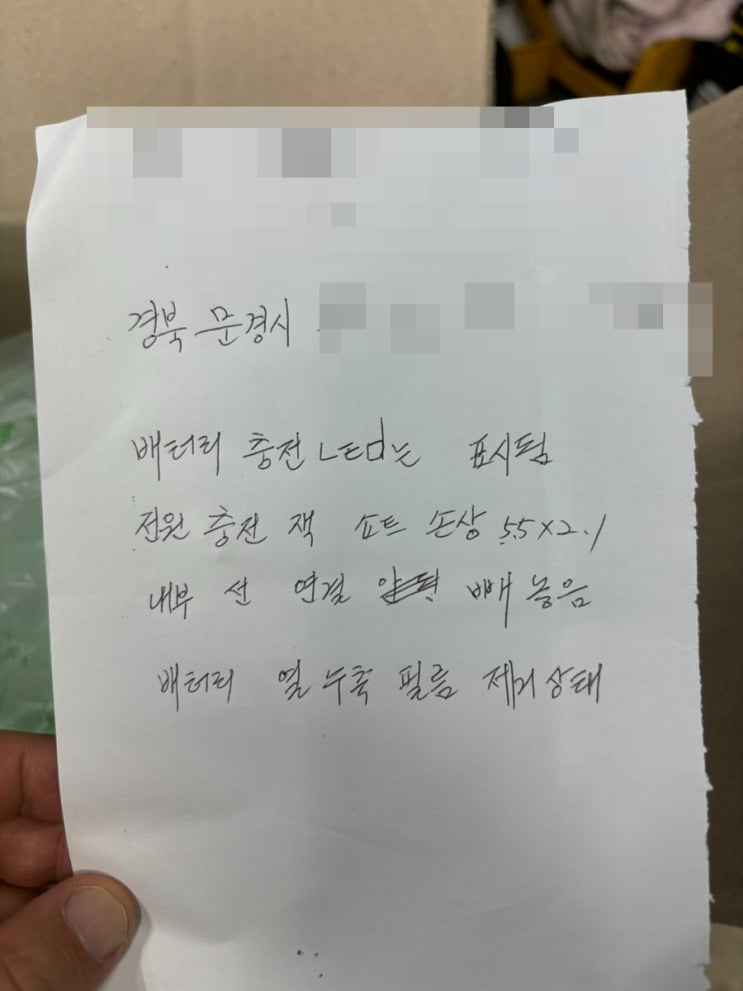 경북 문경시
배터리 충전 LEd는 표시됨
전원 충전 잭 쇼트 손상 5.5×2.1
내부 선 연결 빼놓음
배터리 열 수축 필름 제거 상태